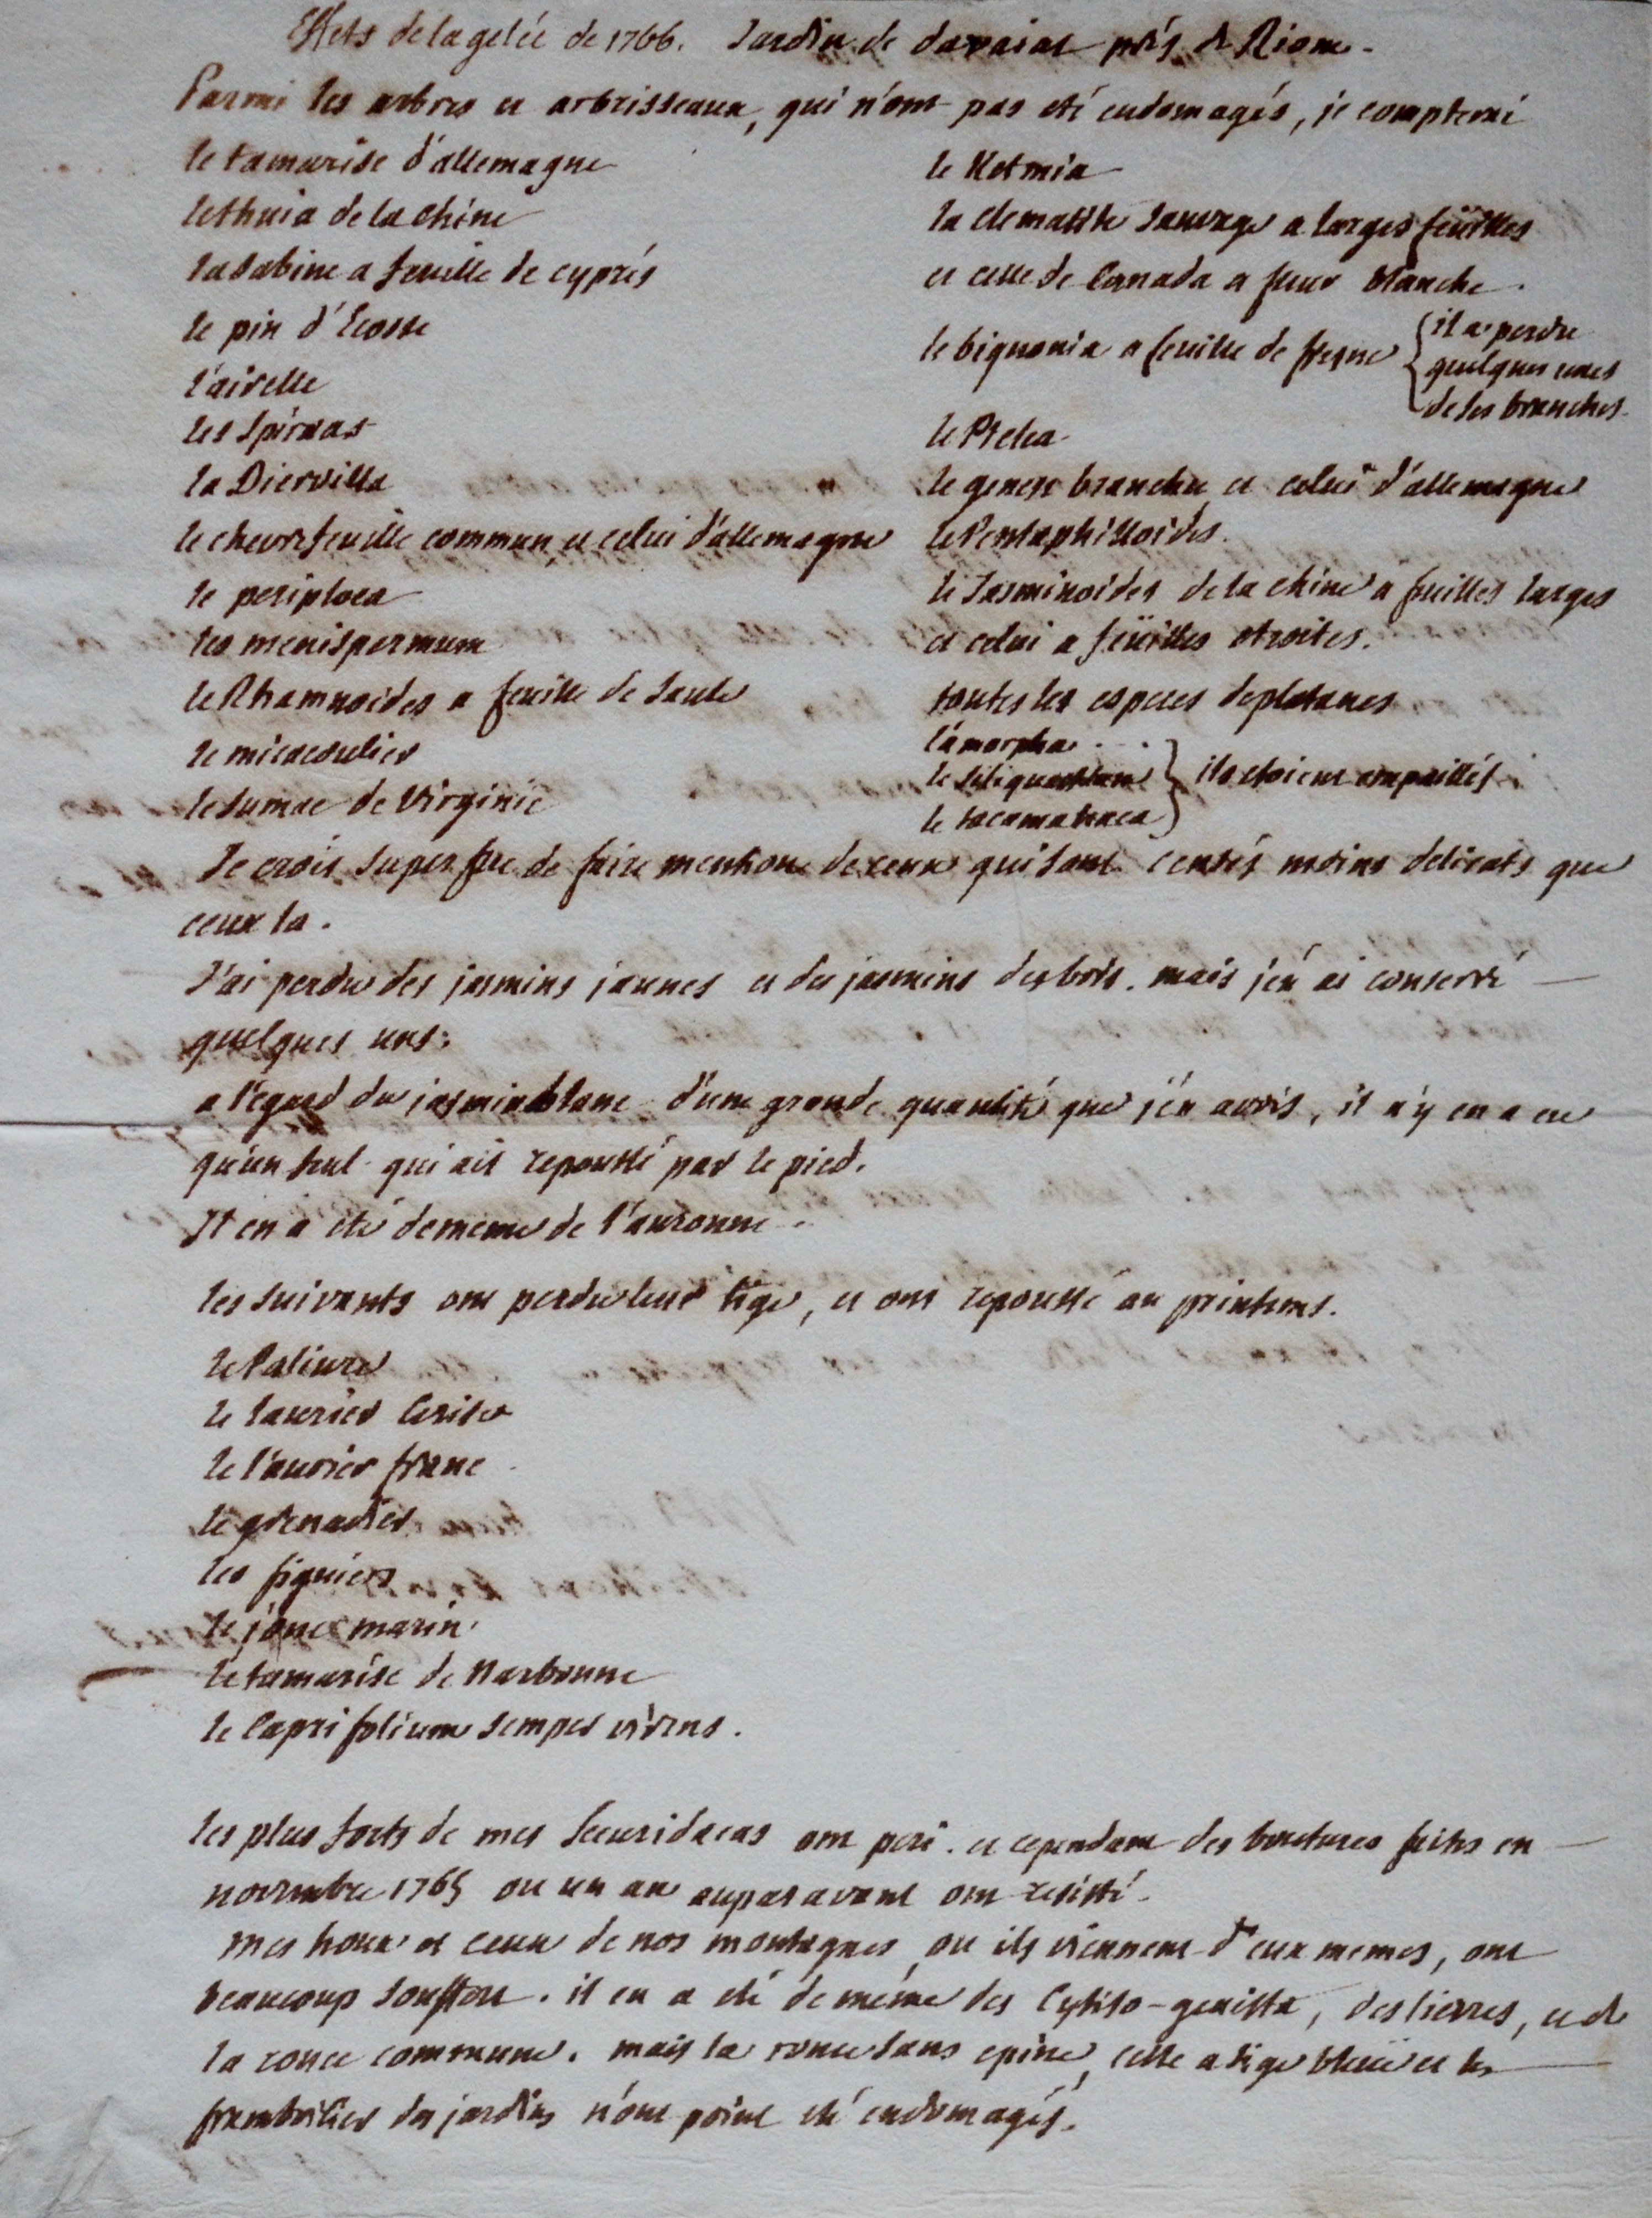 Effets de la gelée de 1766. Jardin de davaiat prés de Riom.
Parmi les arbres et arbrisseaux, qui n'ont pas eté endomagés, je compterai
le tamarisc d'allemagne
le thuia de la chine
la sabine a feuille de cyprés
le pin d'Ecosse
l'airelle
les spiræas
la Diervilla
le chevrefeuille commun et celui d'allemagne
le periploca
les menispermum
le Rhamnoides a feuille de saule
le micacoulier
le sumac de Virginie
le Ketmia
la clematite sauvage a larges feüilles
et celle de Canada a fleur blanche.
le bignonia a feuille de fresne { il a perdu
quelques unes
de ses branches
le Ptelea
le genest branchu et celui d'allemagne
le Pentaphilloides.
le Jasminoides de la chine a feuilles larges
et celui a feüilles etroites.
toutes les especes de platanes
l'amorpha . . .
le siliquastrum } ils etoient empaillés
le tacamahaca
Je crois superflu de faire mention de ceux qui sont censés moins delicats que
ceux la.
J'ai perdu des jasmins jaunes et des jasmins des bois. mais j'en ai conservé
quelques uns.
a l'egard du jasmin blanc d'une grande quantité que j'en avois, il n'y en a eu
qu'un seul qui ait repoussé par le pied.
Il en a eté de meme de l'auronne.
les suivants ont perdu leur tige, et ont repoussé au printems.
le Paliure
le laurier Cerise
le l'aurier franc
le grenadier
les figuiers
le jonc marin.
le tamarisc de Narbonne
le Caprifolium semper virens.
les plus forts de mes securidacas ont peri. et cependant des boutures faites en
novembre 1765 ou un an auparavant ont resisté.
mes houx et ceux de nos montagnes, ou ils viennent d'eux memes, ont
beaucoup souffert. il en a eté de méme des Cytiso-genista, des lierres, et de
la ronce commune. mais la ronce sans epine, celle a tige bleüe et les
framboisier des jardins n'ont point eté endomagés.